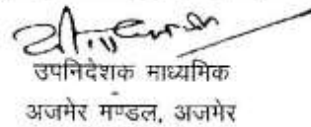 उपनिदेशक माध्यमिक
अजमेर मण्डल, अजमेर